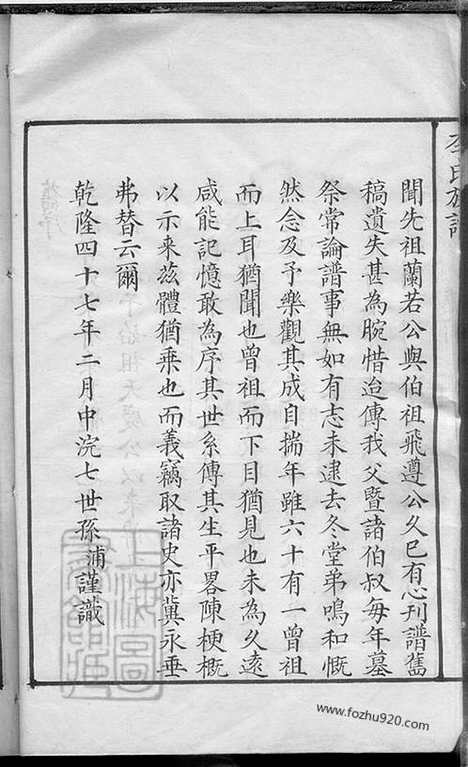 李氏族譜
聞先祖蘭若公與伯祖飛遵公久已有心刊譜舊
稿遺失甚為腕惜迨傳我父暨諸伯叔每年墓
祭常論譜事無如有志未逮去冬堂弟鳴和慨
然念及予樂觀其成自揣年雖六十有一曾祖
而上耳猶聞也曾祖而下目猶見也未為久遠
咸能記憶敢為序其世系傳其生平畧陳梗概
以示来茲體猶乗也而義竊取諸史亦冀永垂
弗替云爾
乾隆四十七年二月中浣七世孫浦謹識
www.fozhu920.com